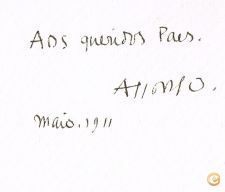 Aos queridos Paes.
Affonso.
Maio. 1911